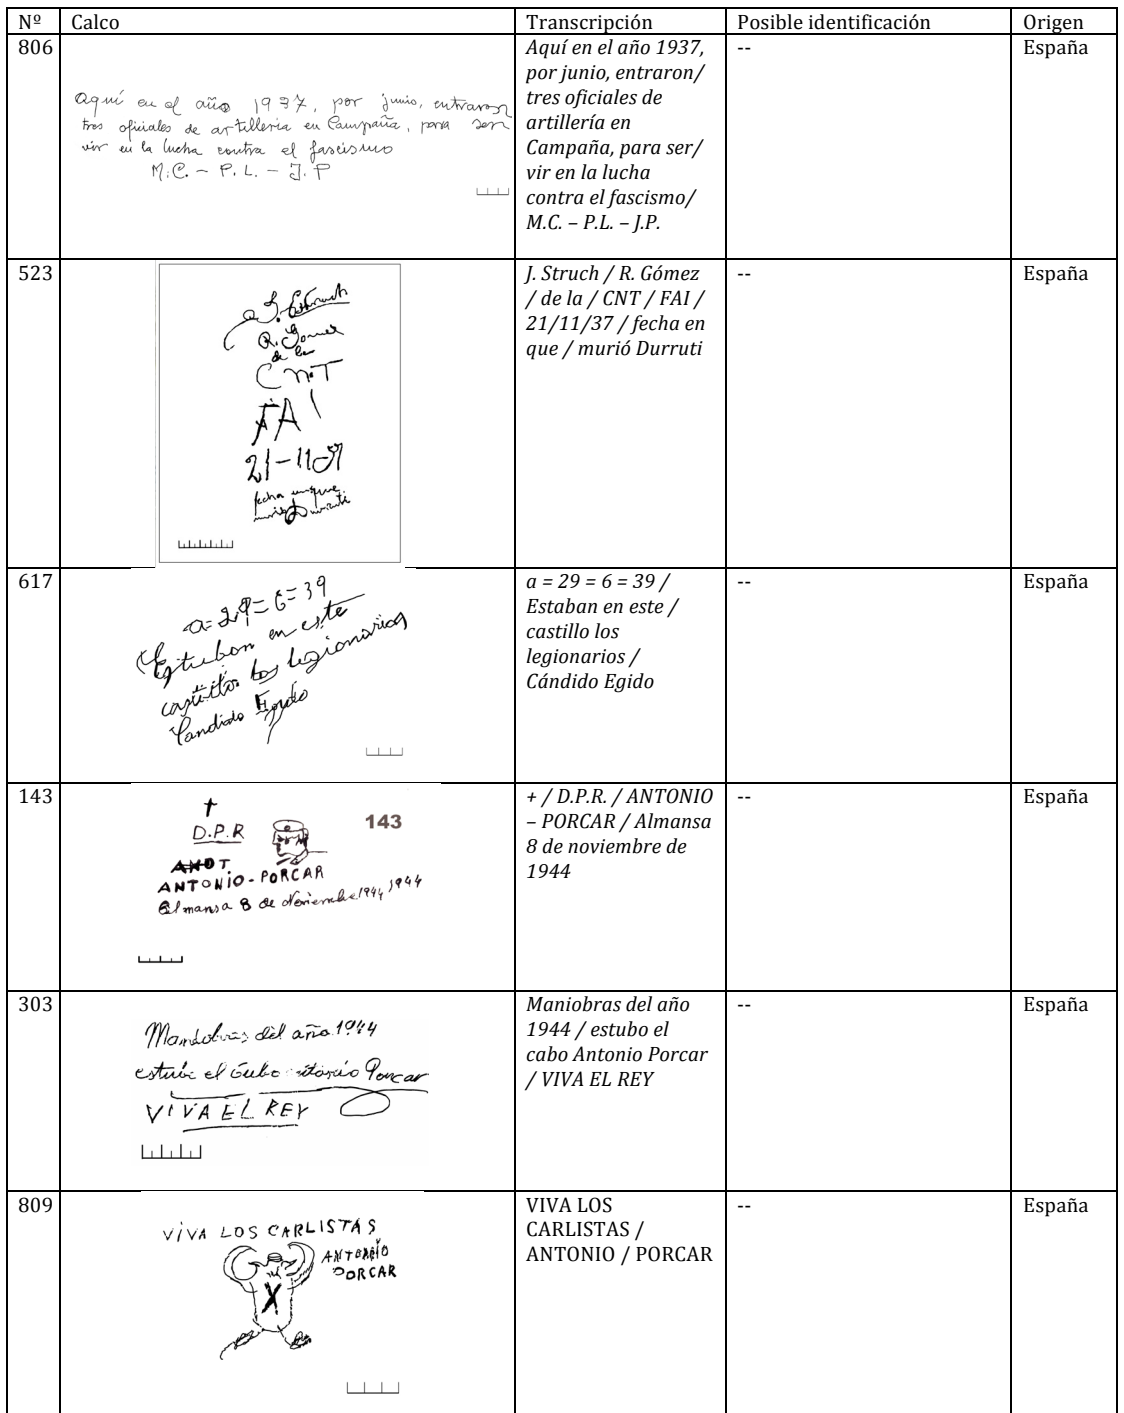 Nº Calco Transcripción Posible identificación Origen
806
Aquí en el año 1937, por junio, entraron
tres oficiales de artilleria en Campaña, para ser
vir en la lucha contra el fascismo
M.C. – P. L. – J. P
Aquí en el año 1937,
por junio, entraron/
tres oficiales de
artillería en
Campaña, para ser/
vir en la lucha
contra el fascismo/
M.C. – P.L. – J.P.
--
España
523
J. Estruch
R. Gomez
de la
CNT
FAI
21-11-37
fecha en que
murio Durruti
J. Struch / R. Gómez
/ de la / CNT / FAI /
21/11/37 / fecha en
que / murió Durruti
--
España
617
a=29=6=39
Estubon en este
castillo los legionarios
Candido Egido
a = 29 = 6 = 39 /
Estaban en este /
castillo los
legionarios /
Cándido Egido
--
España
143
D.P.R
143
ANOT
ANTONIO-PORCAR
Almansa 8 de Noviembre 1944 1944
+ / D.P.R. / ANTONIO
– PORCAR / Almansa
8 de noviembre de
1944
--
España
303
Maniobras del año 1944
estubo el Cabo Antonio Porcar
VIVA EL REY
Maniobras del año
1944 / estubo el
cabo Antonio Porcar
/ VIVA EL REY
--
España
809
VIVA LOS CARLISTAS
ANTONIO
PORCAR
X
VIVA LOS
CARLISTAS /
ANTONIO / PORCAR
--
España